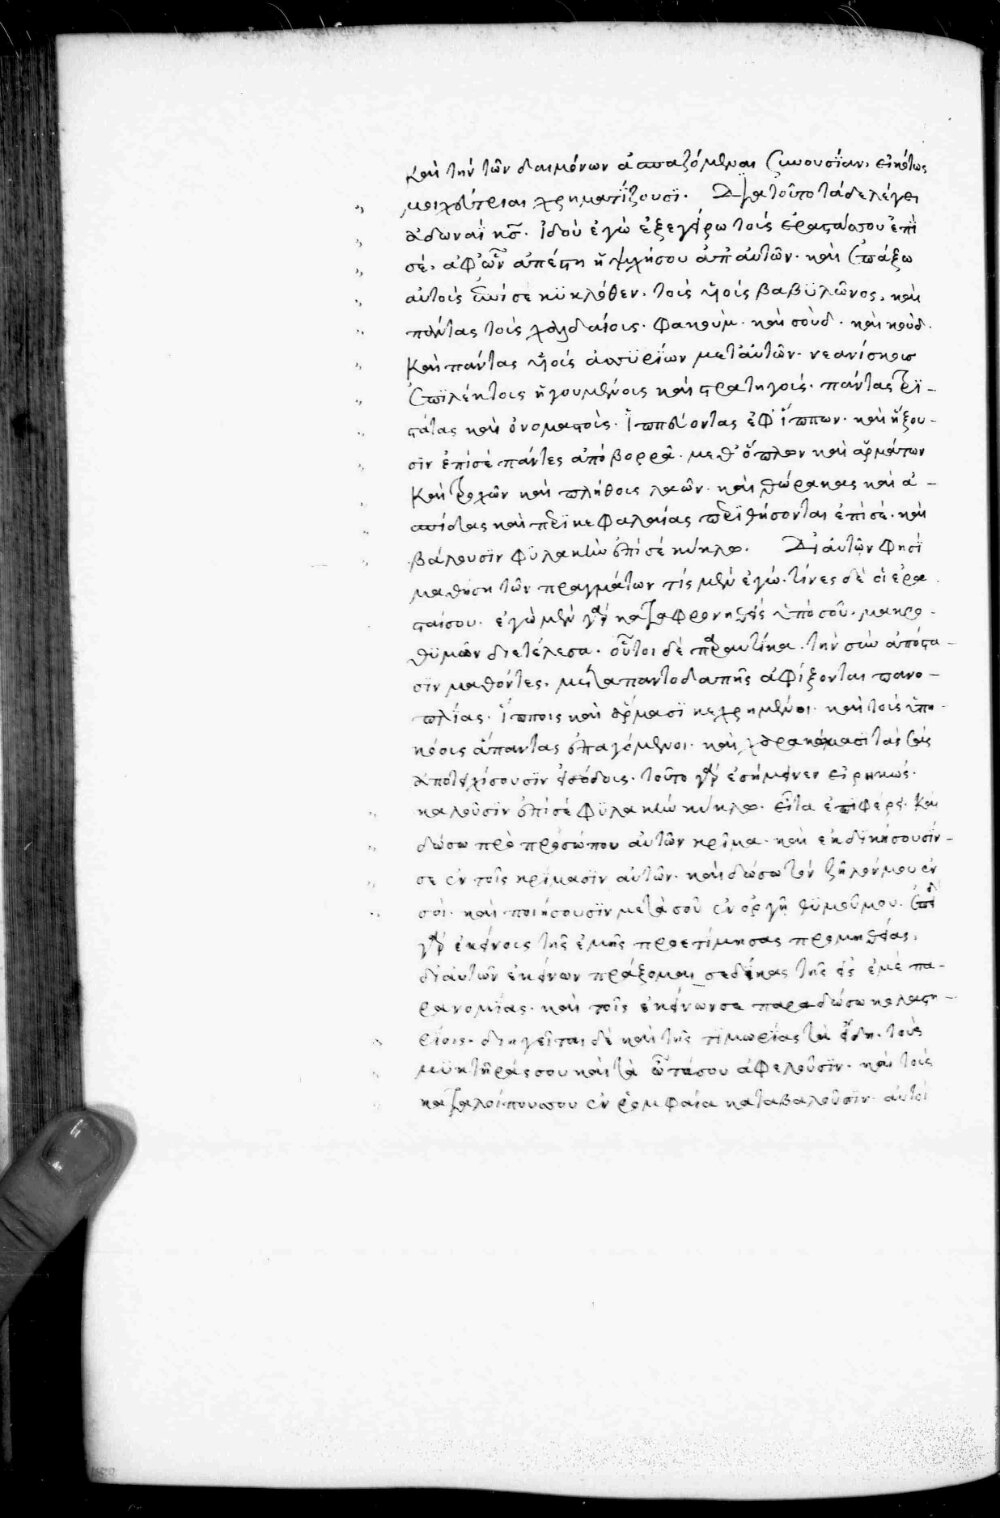 καὶ τὴν τῶν δαιμόνων ἀσπαζόμεναι συνουσίαν, εἰκότως
μοιχεύτριαι χρηματίζουσι. Διατοῦτο τάδε λέγει
ἀδωναῒ κς̅. ἰδοὺ ἐγὼ ἐξεγείρω τοὺς ἐραστάς σου ἐπὶ
σέ, ἀφ' ὧν ἀπέστη ἡ ψυχή σου ἀπ' αὐτῶν. καὶ ἐπάξω
αὐτοὺς ἐπί σε κυκλόθεν. τοὺς υἱοὺς βαβυλῶνος, καὶ
πάντας τοὺς χαλδαίους. φακοὺμ. καὶ σοὺδ. καὶ κοὺδ.
καὶ πάντας υἱοὺς ἀσσυρίων μετ' αὐτῶν. νεανίσκους
ἐπιλέκτους ἡγουμένους καὶ στρατηγούς. πάντας τρι-
στάτας καὶ ὀνομαστούς. ἱππεύοντας ἐφ' ἵππων. καὶ ἥξου-
σιν ἐπὶ σὲ πάντες ἀπὸ βορρᾶ. μεθ' ὅπλων καὶ ἁρμάτων
καὶ τροχῶν καὶ πλήθους λαῶν. καὶ θώρακας καὶ ἀ-
σπίδας καὶ περικεφαλαίας περιθήσονται ἐπὶ σέ. καὶ
βάλουσιν φυλακὴν ἐπὶ σὲ κύκλῳ. Δι' αὐτῶν φησὶ
μαθήση τῶν πραγμάτων τίς μὲν ἐγώ. τίνες δὲ οἱ ἐρα
σταί σου. ἐγὼ μὲν γὰρ καταφρονηθεὶς ὑπὸ σοῦ. μακρο-
θυμῶν διετέλεσα. οὗτοι δὲ παραυτίκα. τὴν σὴν ἀπόστα-
σιν μαθόντες, μετὰ παντοδαπῆς ἀφίξονται πανο-
πλίας. ἵπποις καὶ ἅρμασι κεχρημένοι. καὶ τοὺς ὑπη-
κόους ἅπαντας ἐπαγόμενοι. καὶ χαρακώμασι τὰς σὰς
ἀποτειχίσουσιν εἰσόδους. τοῦτο γὰρ ἐσήμανεν εἰρηκώς.
καλοῦσιν ἐπὶ σὲ φυλακὴν κύκλῳ. εἶτα ἐπιφέρει. καὶ
δώσω πρὸ προσώπου αὐτῶν κρίμα. καὶ ἐκδικήσουσίν
σε ἐν τοῖς κρίμασιν αὐτῶν. καὶ δώσω τὸν ζῆλόν μου ἐν
σοί. καὶ ποιήσουσιν μετὰ σοῦ ἐν ὀργῇ θυμοῦ μου. ἐπειδὴ
γὰρ ἐκείνους τῆς ἐμῆς προετίμησας προμηθείας,
δι' αὐτῶν ἐκείνων πράξομαι σε δίκας τῆς εἰς ἐμὲ πα-
ρανομίας. καὶ τοῖς ἐκείνων σε παραδώσω κολαστη-
ρίοις. διηγεῖται δὲ καὶ τῆς τιμωρίας τὰ εἴδη. τοὺς
μυκτῆράς σου καὶ τὰ ὦτά σου ἀφελοῦσιν. καὶ τοὺς
καταλοίπους σου ἐν ῥομφαία καταβαλοῦσιν. αὐτοὶ